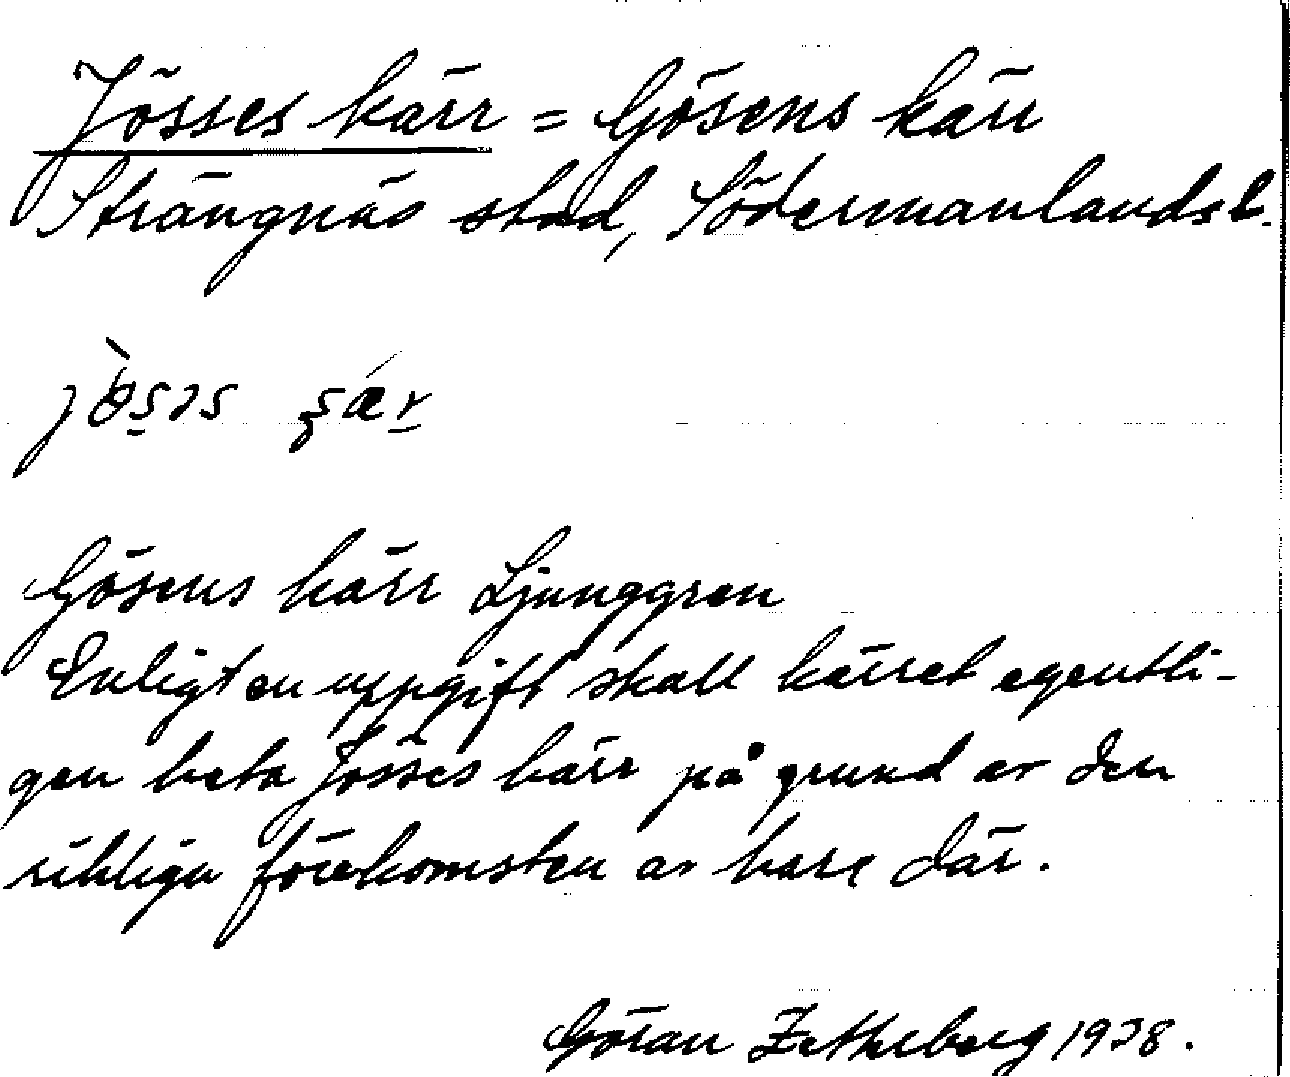 Jösses kärr = Gösens kärr
Strängnäs stad, Södermanlands l.
Gösens kärr Ljunggren
Enligt en uppgift skall kärret egentli-
gen heta Jösses kärr på grund av den
rikliga förekomsten av hare där.
Göran Zetterberg 1938.